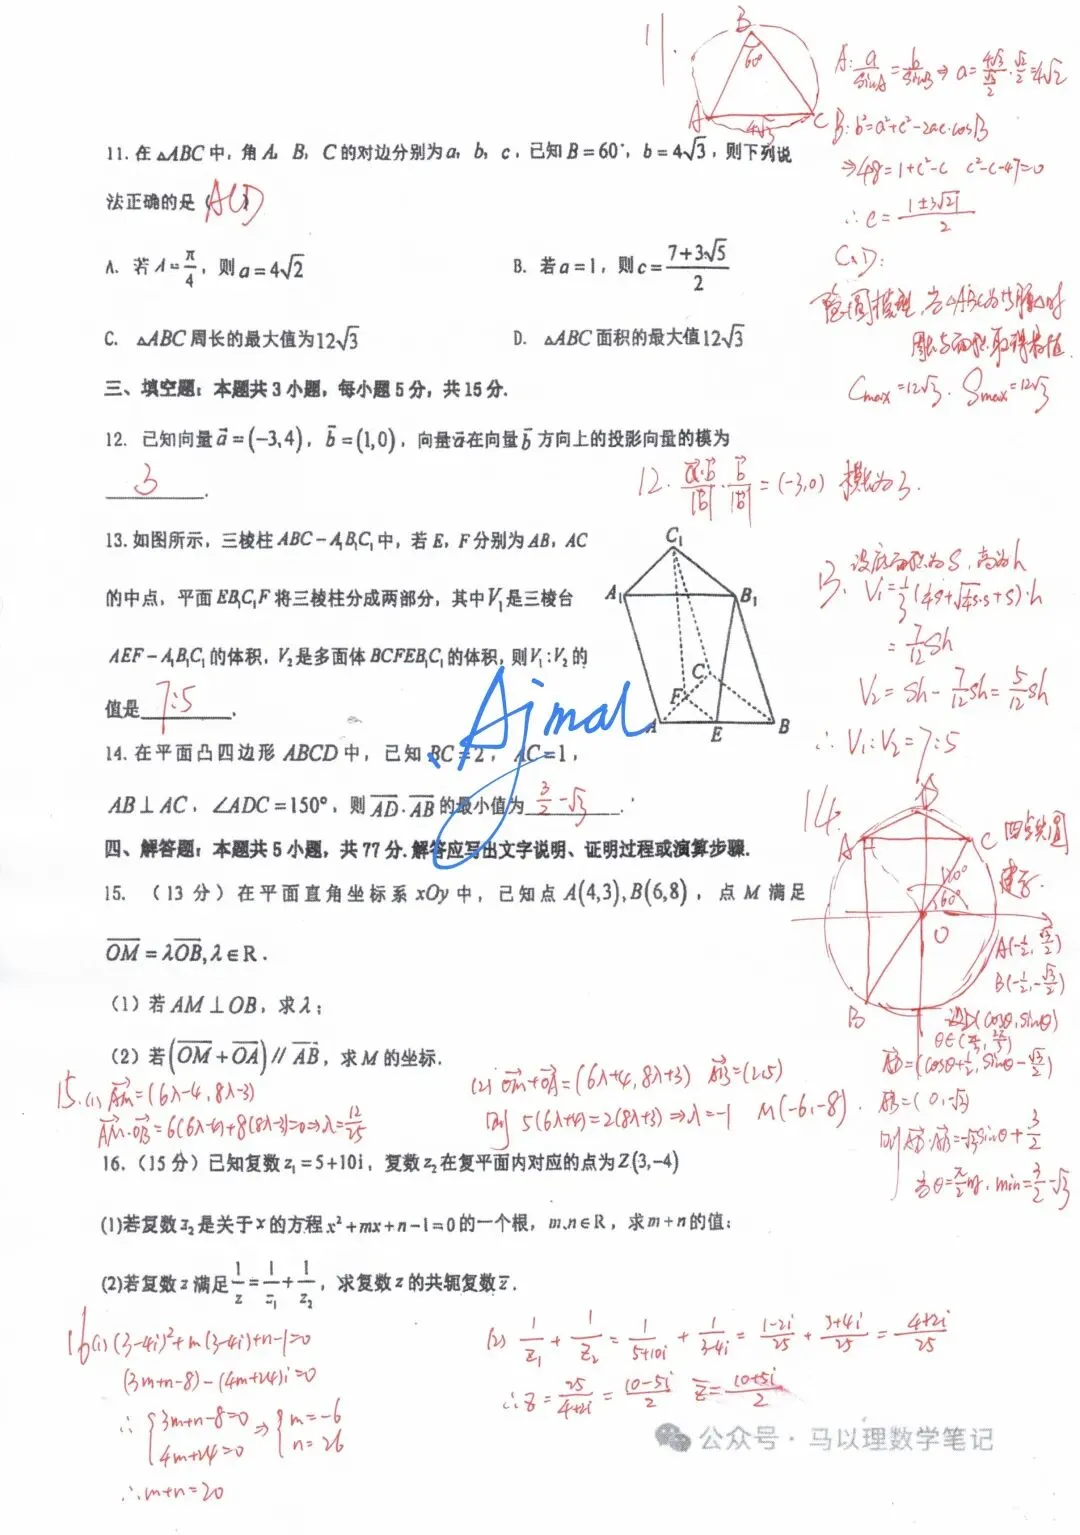 11.
B
60°
A
4√3
C
A: a/sinA = b/sinB ⇒ a = 4√3/(√3/2) · √2/2 = 4√2
B: b²=a²+c²-2ac·cosB
⇒48=1+c²-c c²-c-47=0
∴ c = (1±3√21)/2
C、D:
隐圆模型,当△ABC为
周长与面积取得最值
Cmax=12√3. Smax=12√3
11. 在△ABC中,角A,B,C的对边分别为a,b,c,已知B=60°,b=4√3,则下列说
法正确的是( ACD )
A. 若A=π/4,则a=4√2
B. 若a=1,则c=(7+3√5)/2
C. △ABC周长的最大值为12√3
D. △ABC面积的最大值12√3
三、填空题:本题共3小题,每小题5分,共15分.
12. 已知向量a⃗=(-3,4),b⃗=(1,0),向量a⃗在向量b⃗方向上的投影向量的模为
3.
12. a⃗·b⃗/|b⃗| · b⃗/|b⃗| = (-3,0) 模长为3.
13. 如图所示,三棱柱ABC-A₁B₁C₁中,若E,F分别为AB,AC
的中点,平面EB₁C₁F将三棱柱分成两部分,其中V₁是三棱台
AEF-A₁B₁C₁的体积,V₂是多面体BCFEB₁C₁的体积,则V₁:V₂的
值是 7:5 .
C₁
A₁
B₁
C
F
A
E
B
13. 设底面积为S,高为h
V₁=1/3(4S+√4S·S+S)·h
= 7/12 Sh
V₂ = Sh - 7/12 Sh = 5/12 Sh
∴ V₁:V₂=7:5
Ajmal
14. 在平面凸四边形ABCD中,已知BC=2,AC=1,
AB⊥AC,∠ADC=150°,则AD⃗·AB⃗的最小值为 3/2-√3 .
14.
D
A
C
120°
60°
O
B
四点共圆
建系.
A(-1/2, √3/2)
B(-1/2, -√3/2)
设D(cosθ, sinθ)
θ∈(π/3, 2π/3)
AD⃗=(cosθ+1/2, sinθ-√3/2)
AB⃗=(0,-√3)
则AD⃗·AB⃗=-√3sinθ+3/2
当θ=π/2时, min=3/2-√3
四、解答题:本题共5小题,共77分.解答应写出文字说明、证明过程或演算步骤.
15. (13分)在平面直角坐标系xOy中,已知点A(4,3),B(6,8),点M满足
OM⃗=λOB⃗,λ∈R.
(1)若AM⊥OB,求λ;
(2)若(OM⃗+OA⃗)∥AB⃗,求M的坐标.
15.(1) AM⃗=(6λ-4,8λ-3)
AM⃗·OB⃗=6(6λ-4)+8(8λ-3)=0⇒λ=12/25
(2) OM⃗+OA⃗=(6λ+4,8λ+3) AB⃗=(2,5)
则 5(6λ+4)=2(8λ+3)⇒λ=-1 M(-6,-8).
16. (15分)已知复数z₁=5+10i,复数z₂在复平面内对应的点为Z(3,-4)
(1)若复数z₂是关于x的方程x²+mx+n-1=0的一个根,m,n∈R,求m+n的值;
(2)若复数z满足1/z=1/z₁+1/z₂,求复数z的共轭复数z̄.
16(1) (3-4i)²+m(3-4i)+n-1=0
(3m+n-8)-(4m+24)i=0
∴ {3m+n-8=0 4m+24=0 ⇒ {m=-6 n=26
∴m+n=20
(2) 1/z₁ + 1/z₂ = 1/(5+10i) + 1/(3-4i) = (1-2i)/25 + (3+4i)/25 = (4+2i)/25
∴z = 25/(4+2i) = (10-5i)/2 z̄=(10+5i)/2
公众号·马以理数学笔记